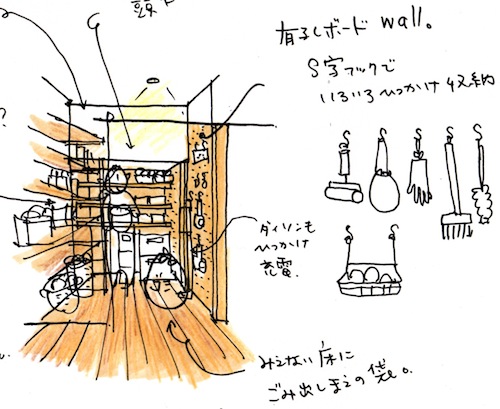 有孔ボード wall。
S字フックで
いろいろひっかけ収納
ダイソンも
ひっかけ
充電.
みえない床に
ごみ出しまえの袋。